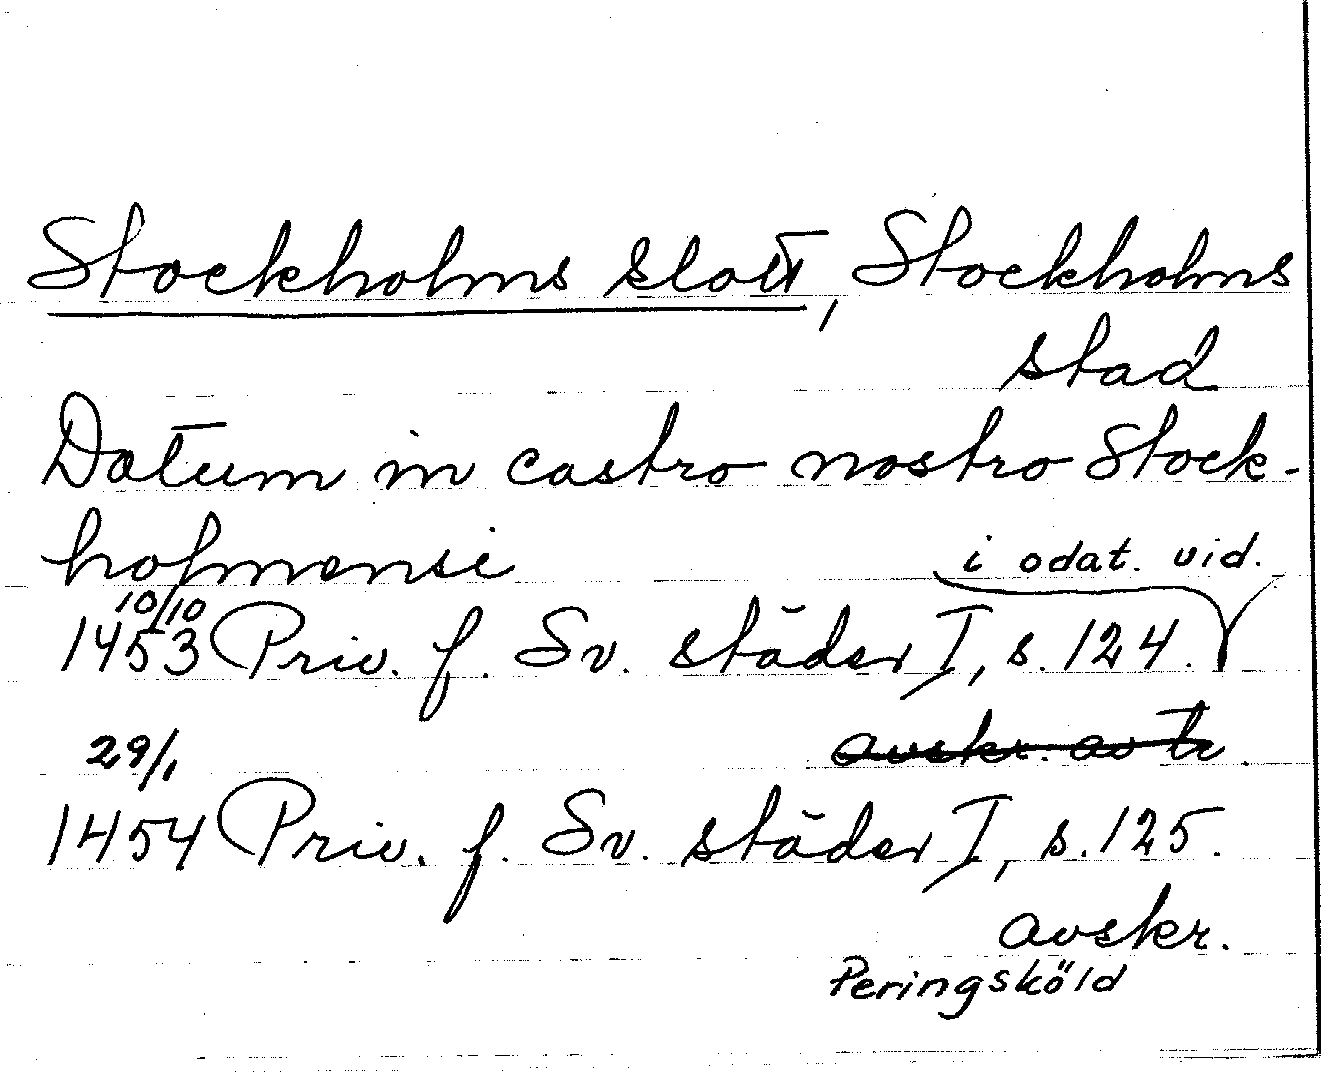 Stockholms slott, Stockholms
stad
Datum in castro nostro Stock-
holmensi
i odat. vid.
10/10
1453 Priv. f. Sv. städer I, s. 124.
avskr. av Tr.
29/1
1454 Priv. f. Sv. städer I, s. 125.
avskr.
Peringsköld